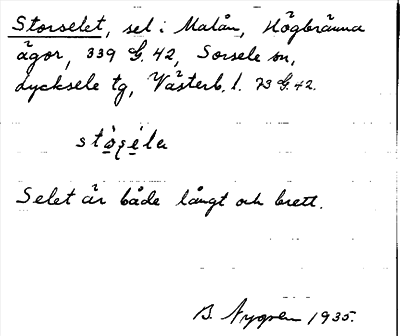 Storselet, sel i Malån, Högbränna
ägor, 339 G. 42, Sorsele sn,
Lycksele tg, Västerb. l. 73 G. 42.
Selet är både långt och brett.
B. Nygren 1935.